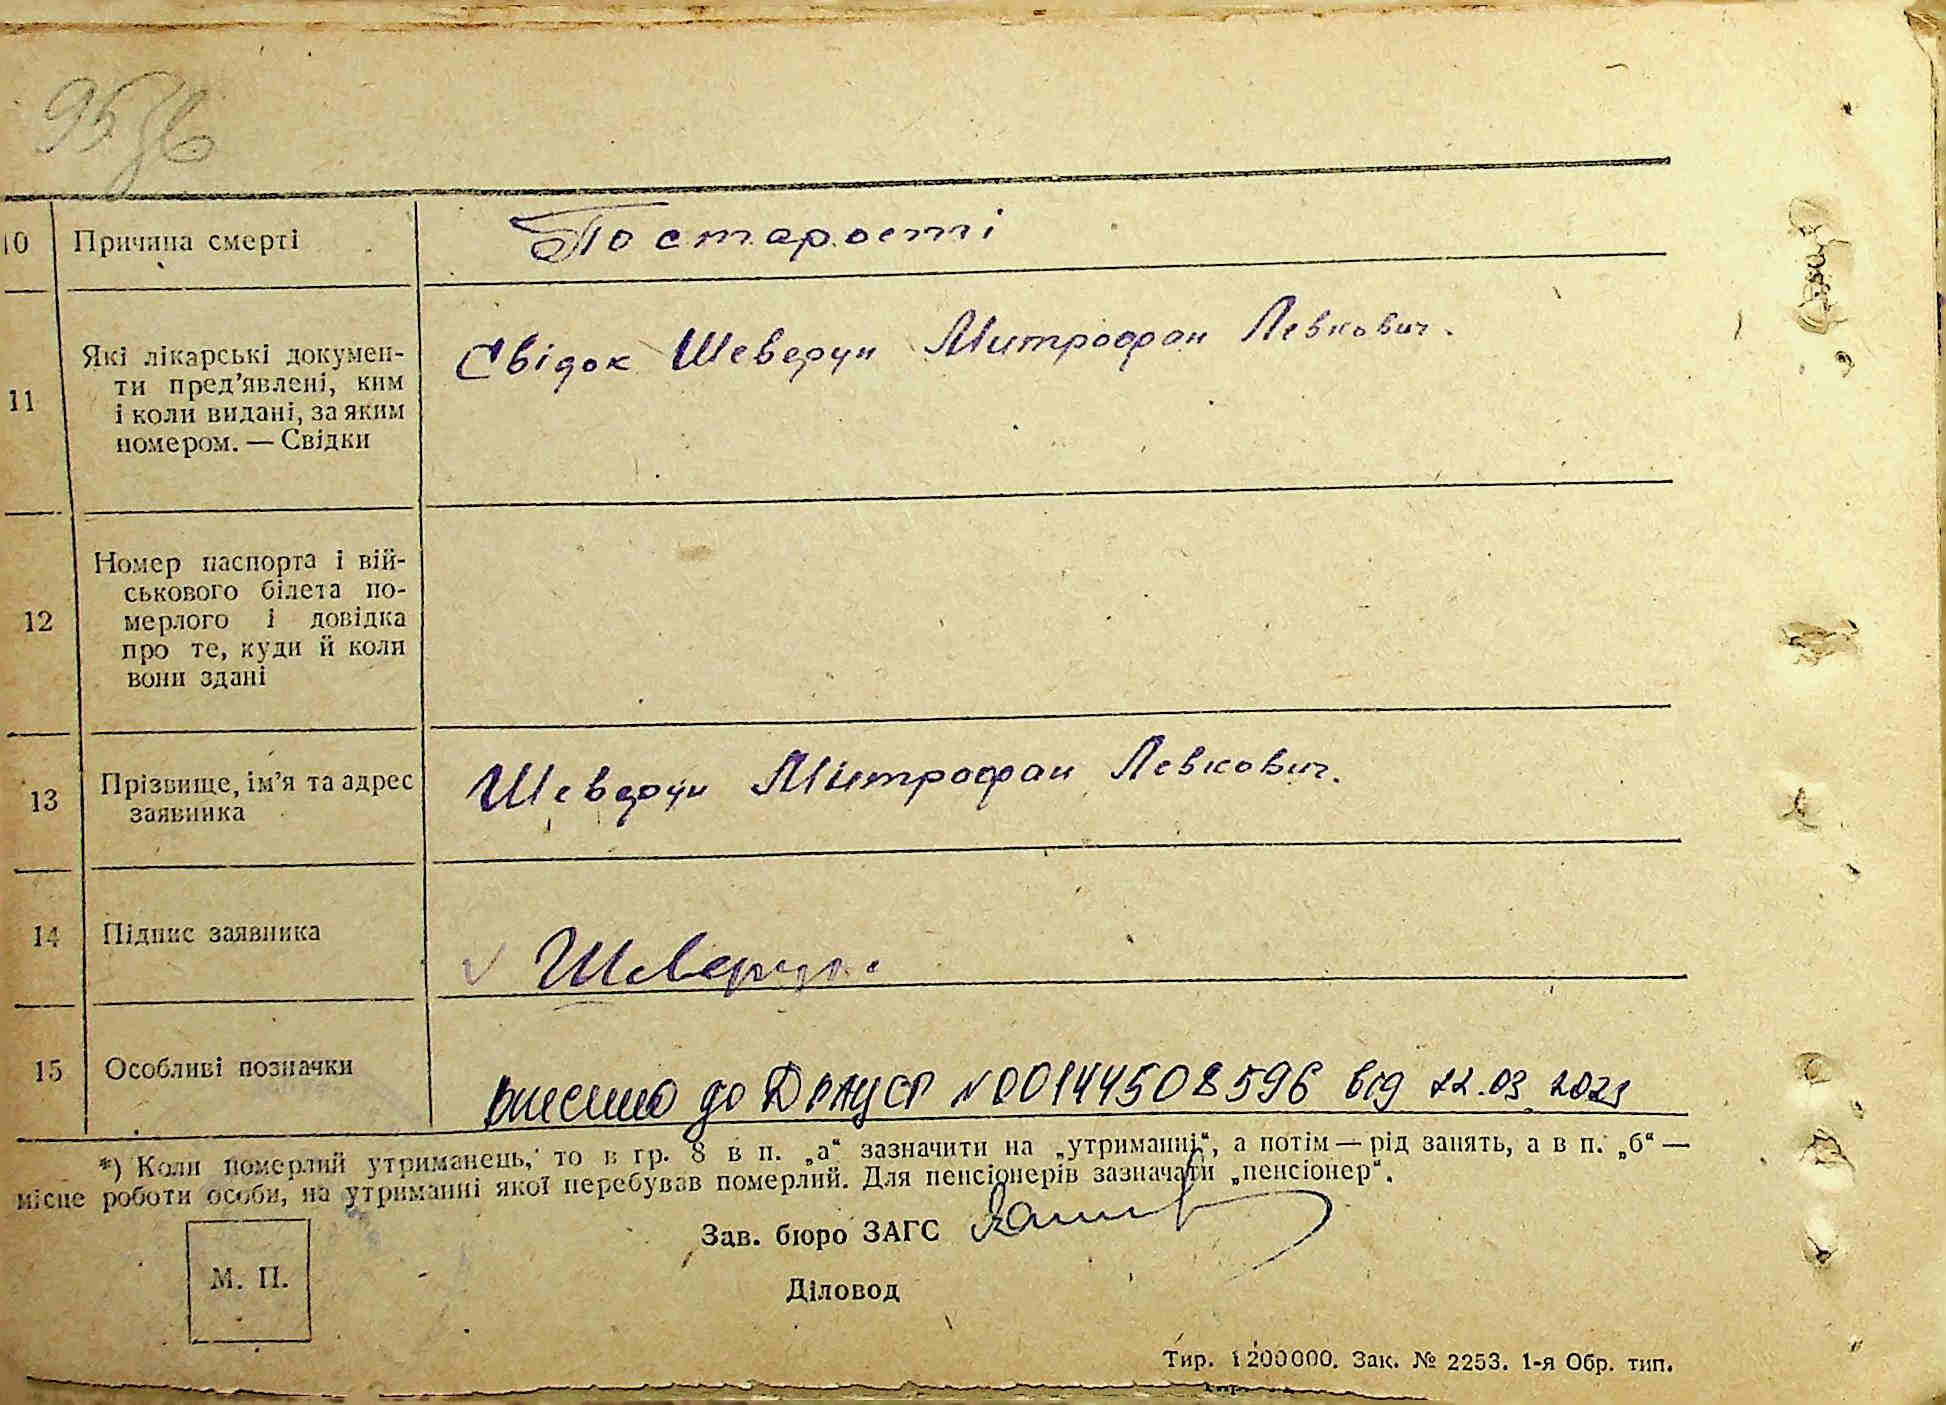 95
10 Причина смерті По старості
11 Які лікарські докумен-
ти пред’явлені, ким
і коли видані, за яким
номером. — Свідки
Свідок Шеверун Митрофан Левкович.
12 Номер паспорта і вій-
ськового білета по-
мерлого і довідка
про те, куди й коли
вони здані
13 Прізвище, ім’я та адрес
заявника
Шеверун Митрофан Левкович.
14 Підпис заявника Шеверун.
15 Особливі позначки внесено до ДРАЦСГ №00144508596 від 22.03.2021
*) Коли померлий утриманець, то в гр. 8 в п. „а“ зазначити на „утриманні“, а потім — рід занять, а в п. „б“ —
місце роботи особи, на утриманні якої перебував померлий. Для пенсіонерів зазначати „пенсіонер“.
Зав. бюро ЗАГС
М. П.
Діловод
Тир. 1200000. Зак. № 2253. 1-я Обр. тип.